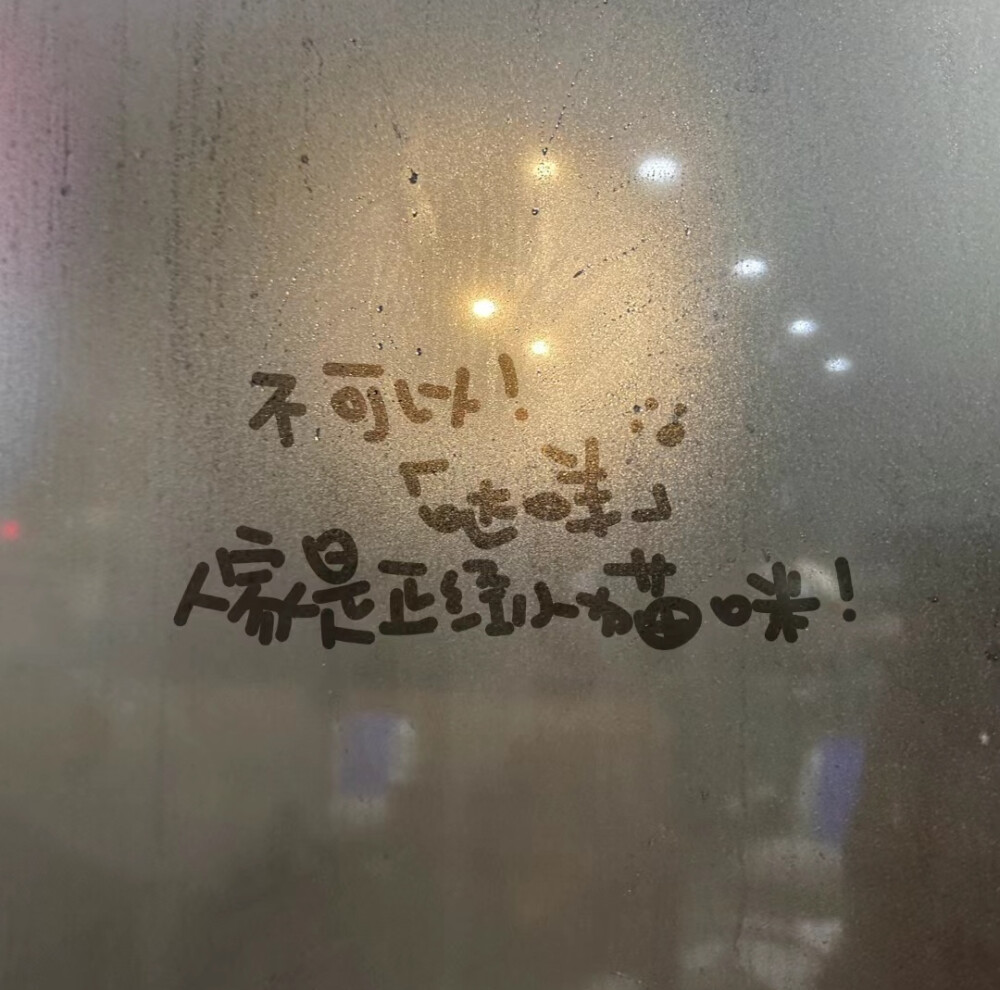 不可以！
「哒咩」
人家是正经小猫咪！